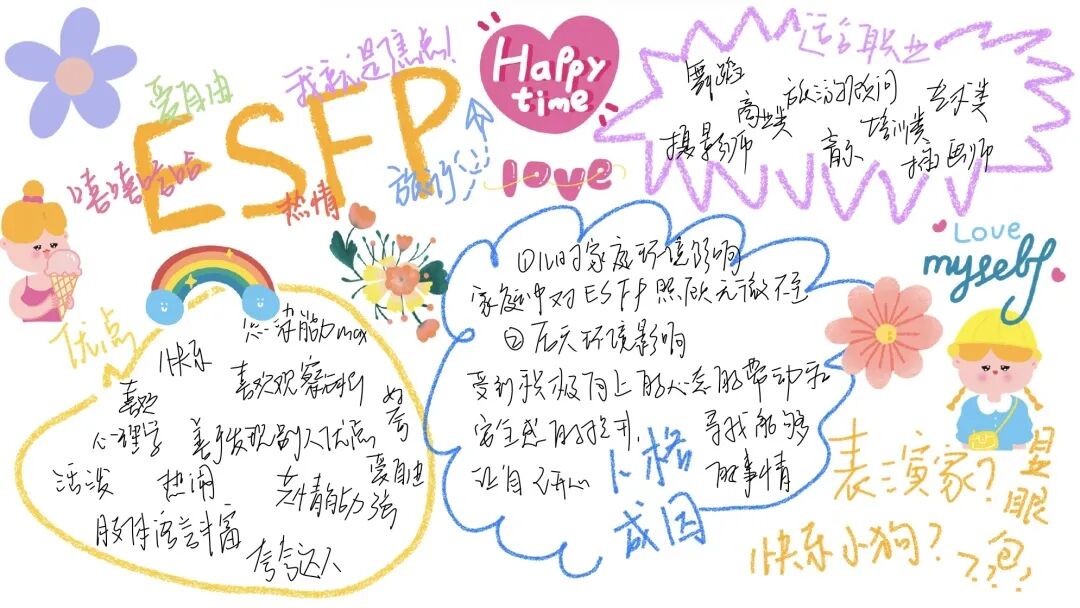 爱自由
我就是焦点!
ESFP
嘻嘻哈哈
热情
旅行
Happy
time
love
适合职业
舞蹈
商业类
旅游顾问
艺术类
摄影师
音乐
培训类
插画师
优点
快乐
沟通能力max
喜欢
心理学
喜欢观察分析
善于发现别人优点
爱自由
活泼
热闹
共情能力强
肢体语言丰富
夸夸达人
①儿时家庭环境影响
家庭中对ESFP照顾无微不至
②后天环境影响
受到积极向上的心态的带动和
安全感的提升,寻找能够
让自己开心的事情
人格
成因
Love
myself
表演家?
显眼包
快乐小狗?